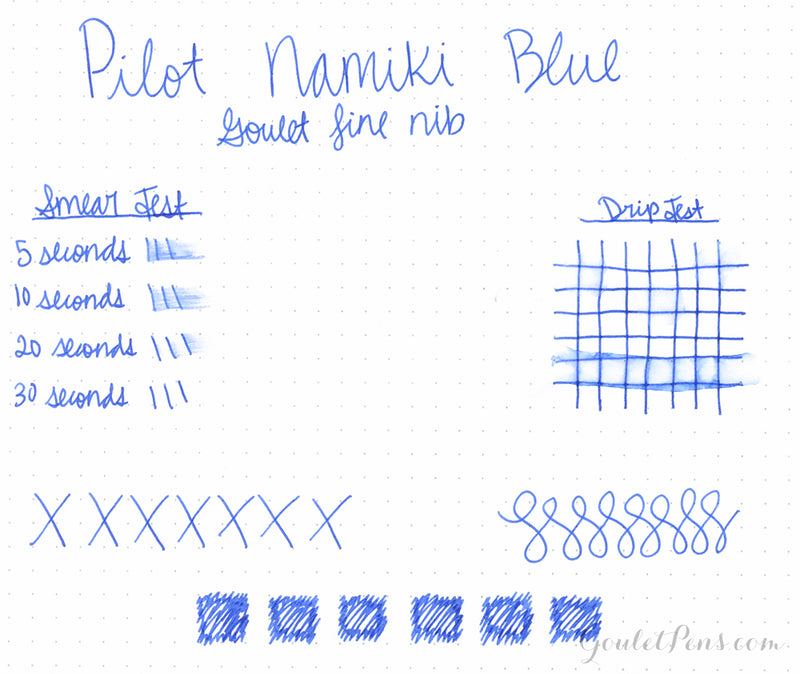 Pilot Namiki Blue
Goulet fine nib
Smear Test
5 seconds
10 seconds
20 seconds
30 seconds
Drip Test
X X X X X X X
GouletPens.com